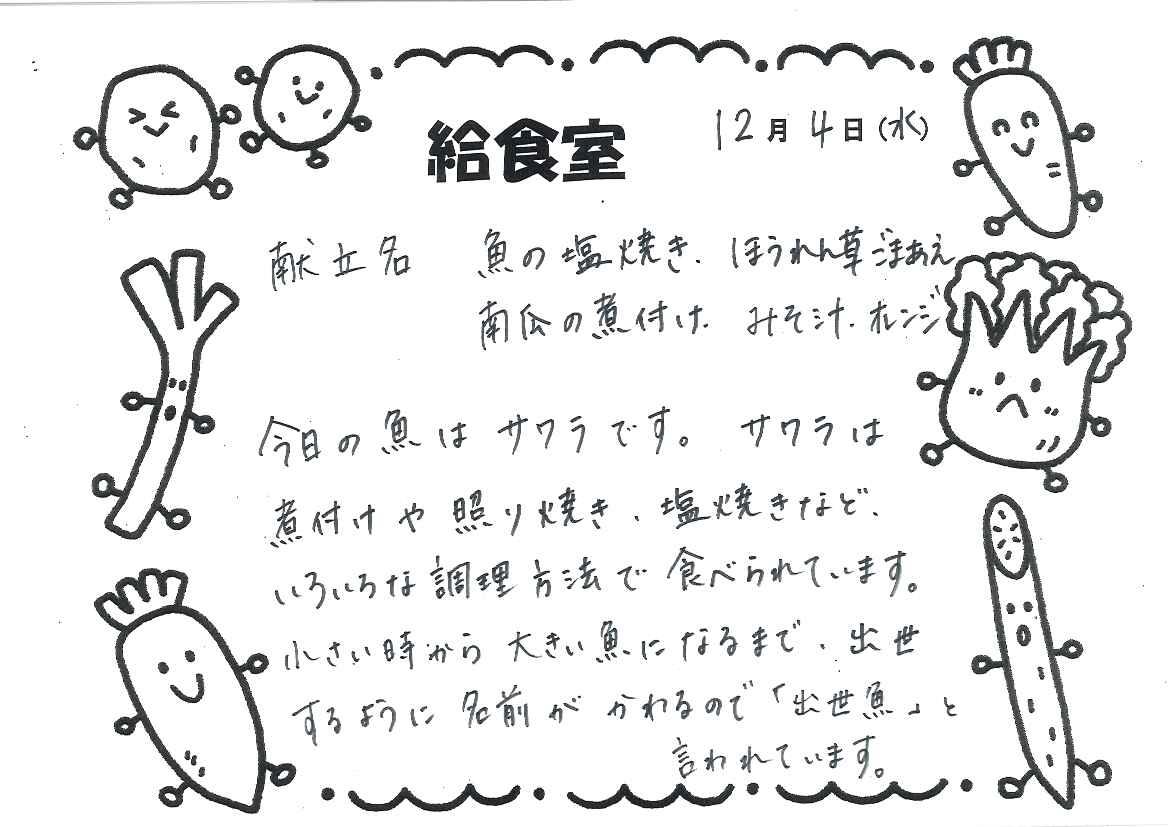 給食室 12月4日(水)
献立名 魚の塩焼き、ほうれん草ごまあえ
南瓜の煮付け、みそ汁、オレンジ
今日の魚はサワラです。サワラは
煮付けや照り焼き、塩焼きなど、
いろいろな調理方法で食べられています。
小さい時から大きい魚になるまで、出世
するように名前がかわるので「出世魚」と
言われています。